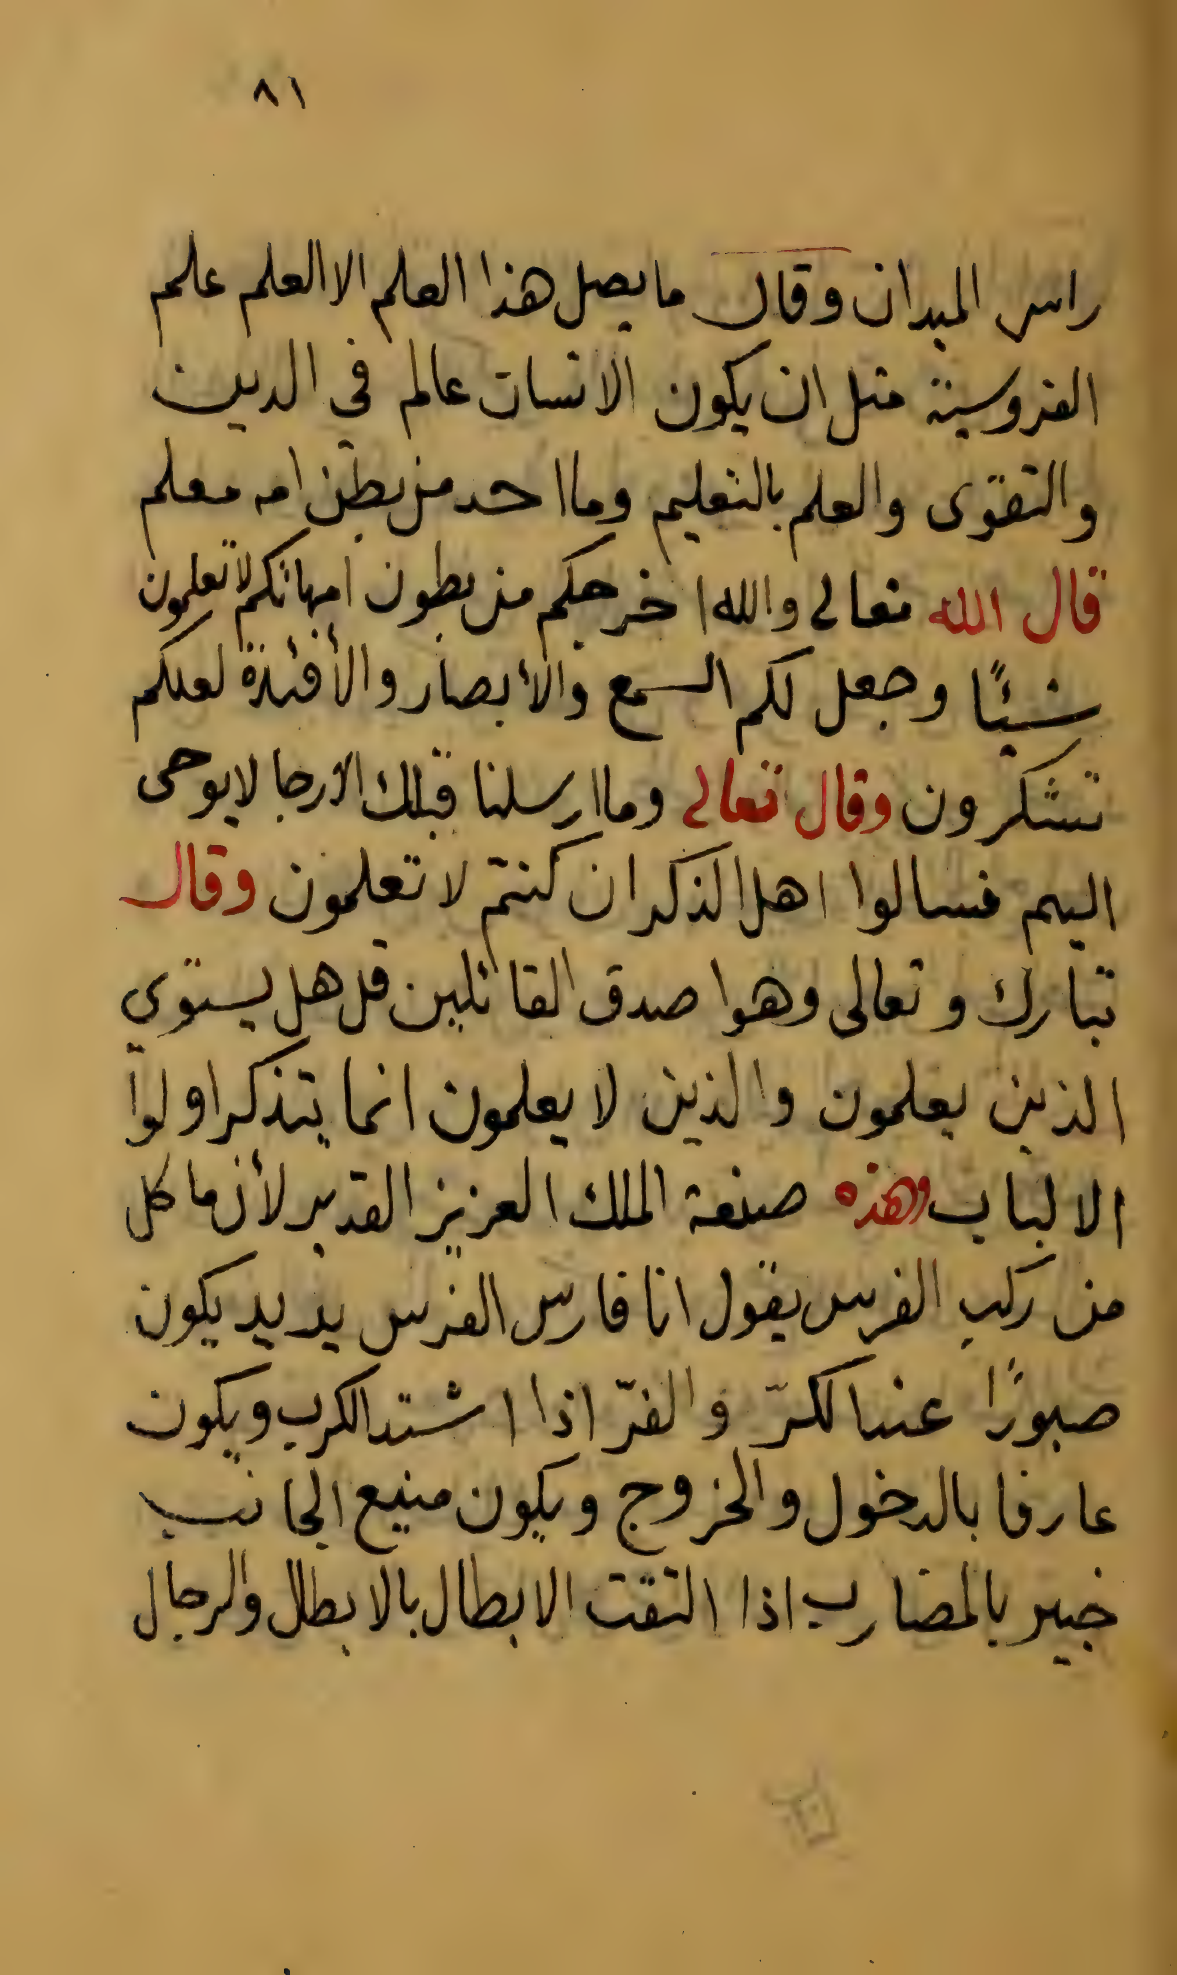 ٨١
راس الميدان وقال ما يصل هذا العلم الا العلم علم
الفروسية مثل ان يكون الانسان عالم في الدين
والتقوى والعلم بالتعليم وما احد من بطن امه معلم
قال الله تعالى والله اخرجكم من بطون امهاتكم لا تعلمون
شيئًا وجعل لكم السمع والأبصار والأفئدة لعلكم
تشكرون وقال تعالى وما ارسلنا قبلك الا رجالا يوحى
اليهم فسالوا اهل الذكر ان كنتم لا تعلمون وقال
تبارك وتعالى وهوا صدق القائلين قل هل يستوي
الذين يعلمون والذين لا يعلمون انما يتذكر اولوا
الالباب وهذه صنعة الملك العزيز القدير لأن ما كل
من ركب الفرس يقول انا فارس الفرس يريد يكون
صبورًا عند الكرّ والفرّ اذا اشتد الكرب ويكون
عارفا بالدخول والخروج ويكون منيع الجانب
خبير بالمضارب اذا التقت الابطال بالابطال والرجال